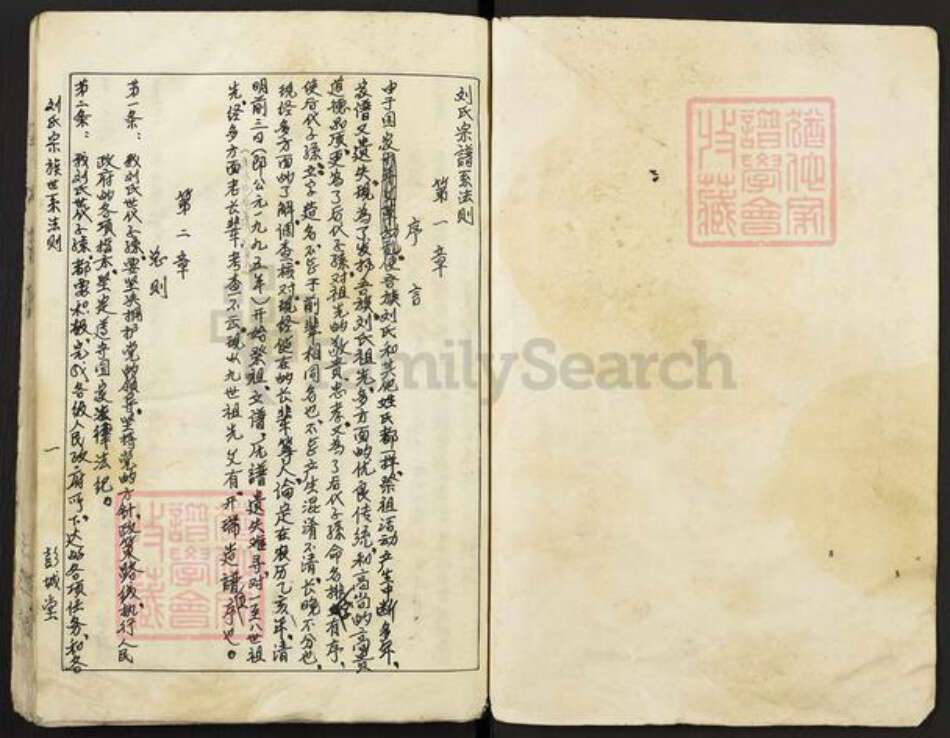 刘氏宗谱系法则
第一章
序言
由于国家形势变革使吾族刘氏和其他姓氏都一样,祭祖活动产生中断多年,
族谱又遗失。现为了发扬吾族刘氏祖先多方面的优良传统和高尚的
道德品质,更为了后代子孙对祖先的敬贵忠孝,又为了后代子孙命名排有序,
使后代子孙立字造名不至于前辈相同名也,不至产生混淆不清,长晚不分也,
现经多方面的了解调查,核对现经健在的长辈等人论定在农历乙亥年,清
明前三日(即公元一九九五年)开始祭祖、立谱,历谱遗失难寻,对一至八世祖
先,经多方面老长辈,考查不云,现以九世祖先 文有,开端造谱序也。
第二章
总则
第一条:我刘氏世代子孙,要坚决拥护党的领导,坚持党的方针、政策、路线,执行人民
政府的各项指示,坚定遵守国家法律法纪。
第二条:我刘氏世代子孙,都要积极完成各级人民政府所下达的各项任务,和各
刘氏宗族世系法则 一 彭城堂
猶他家
譜學會
收藏
FamilySearch